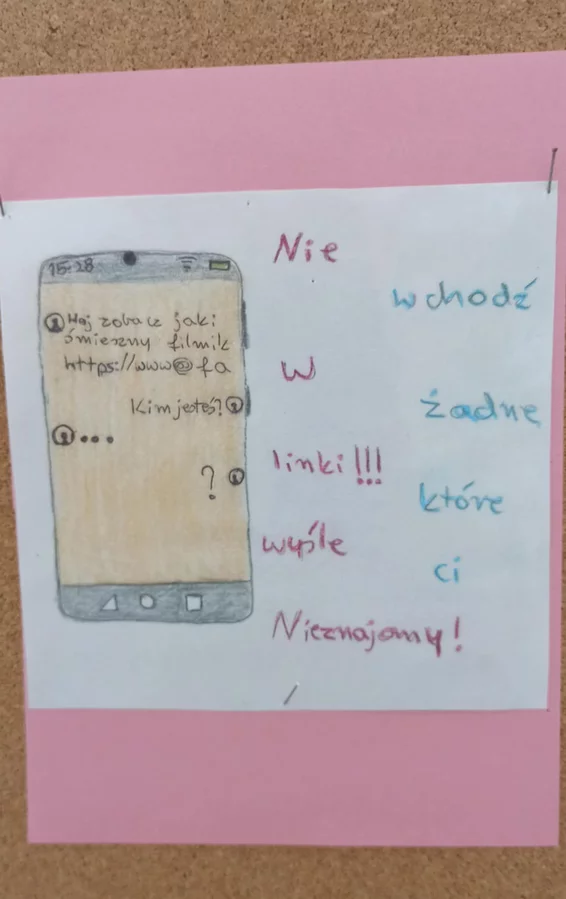 15:28
Haj zobacz jaki
śmieszny filmik
https://www@fa
Kim jesteś?
...
?
Nie
wchodź
w
żadne
linki!!!
które
wyśle
ci
Nieznajomy!